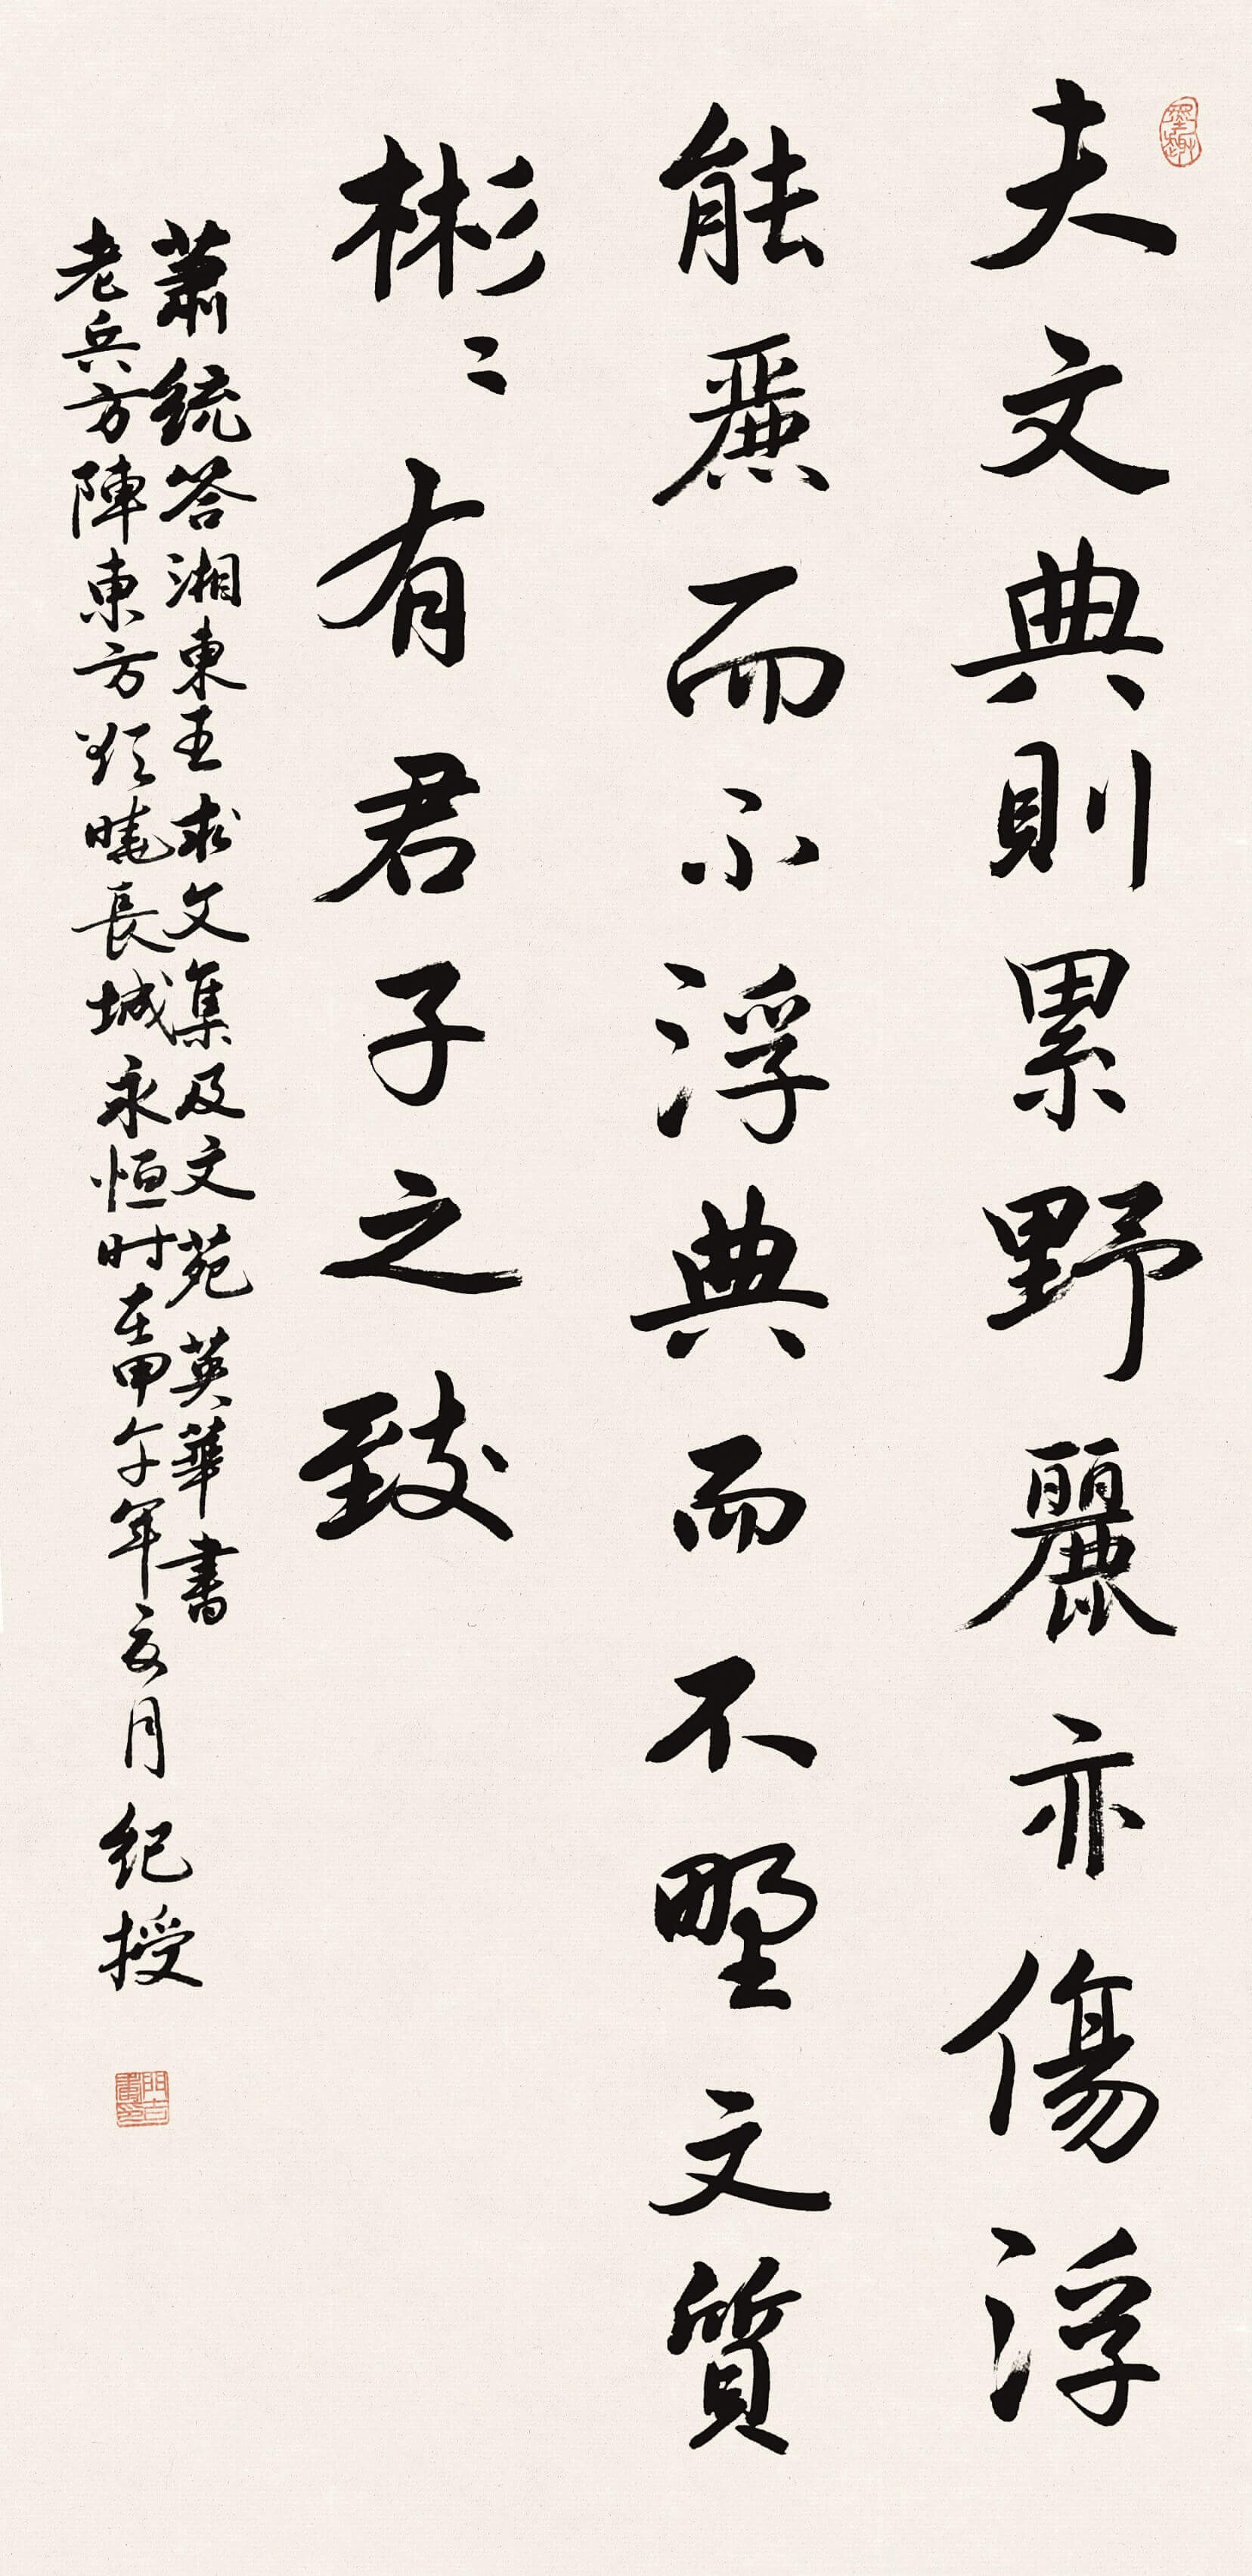 夫文典則累野麗亦傷浮
能麗而不浮典而不野文質
彬彬有君子之致
蕭統答湘東王求文集及文苑英華書
老兵方陣東方欲曉長城永恒时在甲午年夏月 纪授